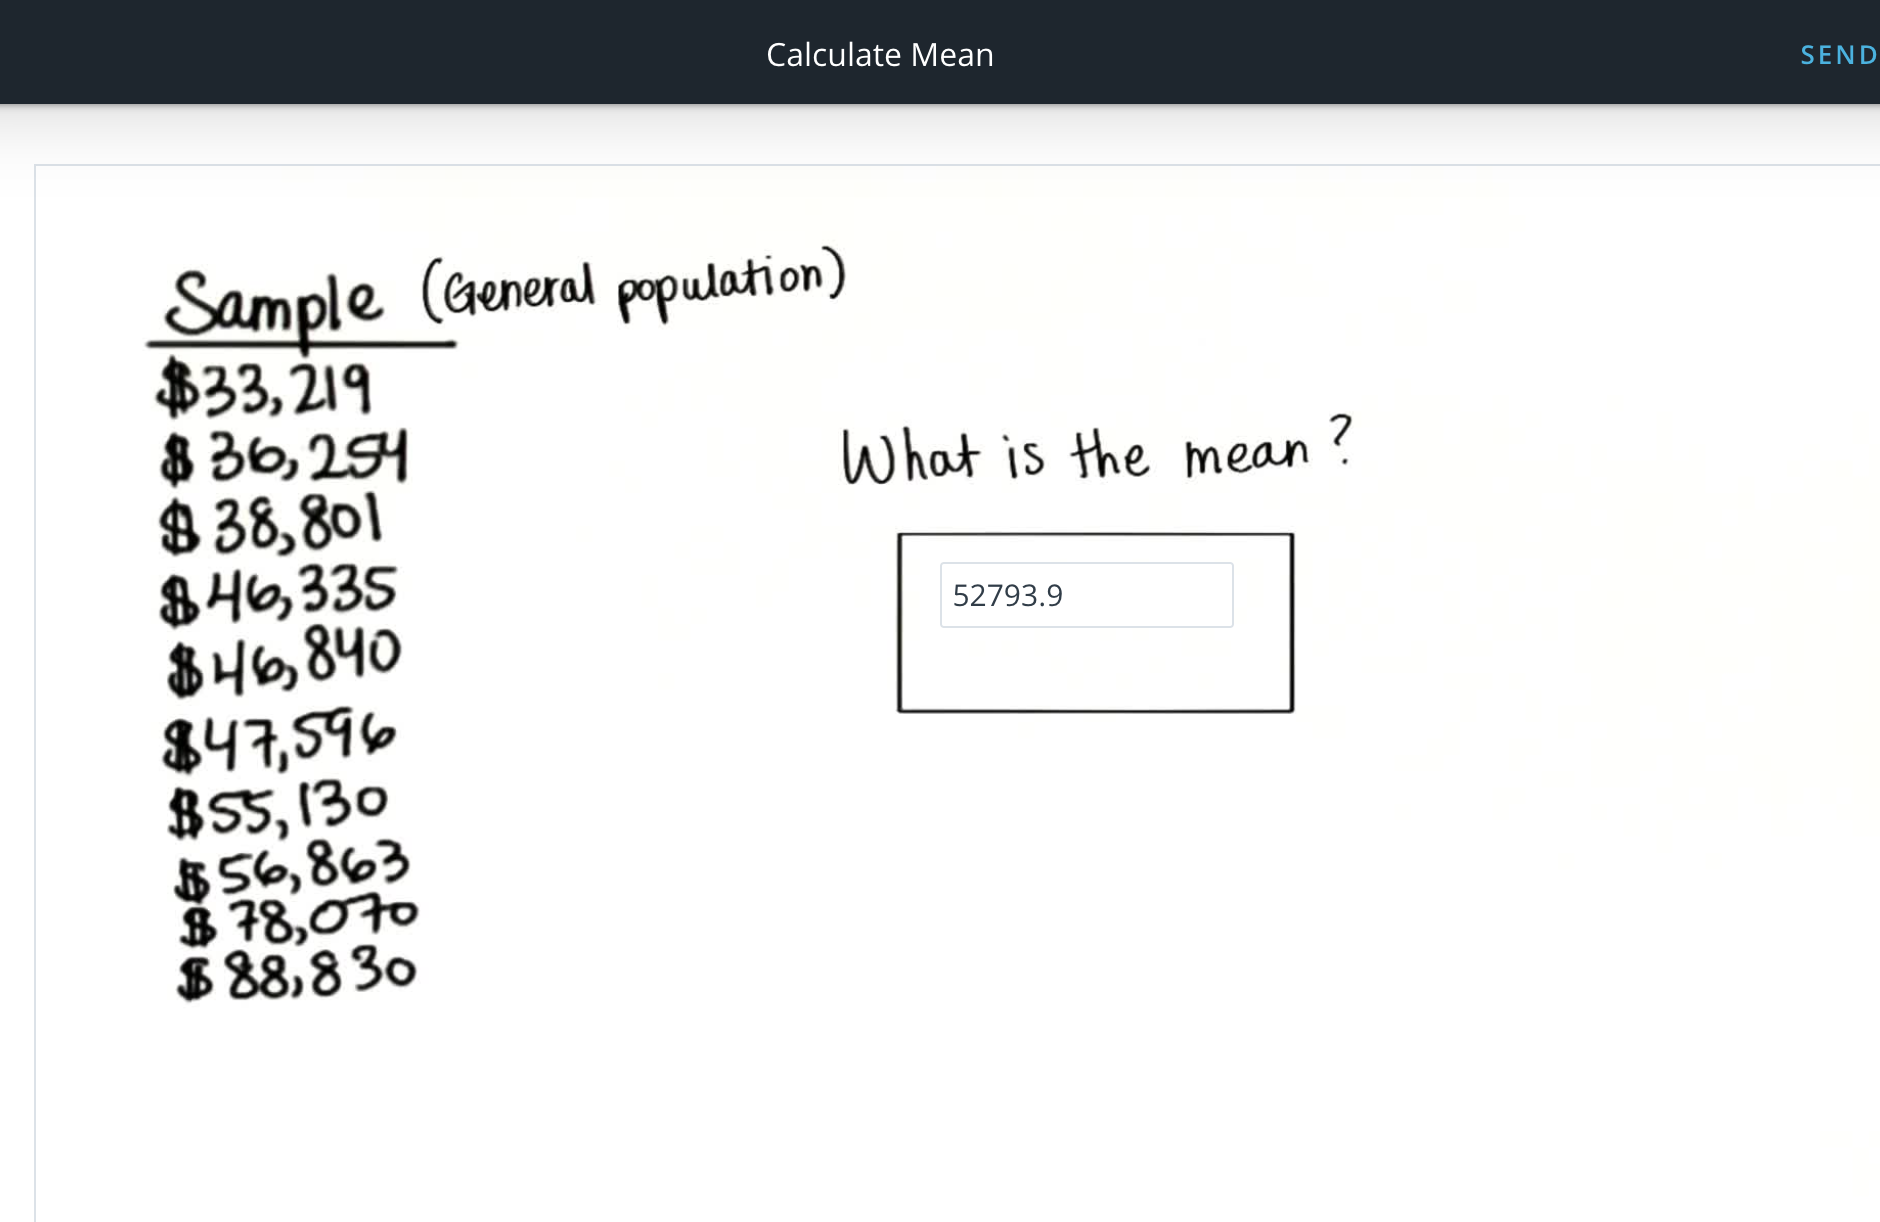 Calculate Mean
SEND
Sample (General population)
$33,219
$36,254
$38,801
$46,335
$46,840
$47,596
$55,130
$56,863
$78,070
$88,830
What is the mean?
52793.9